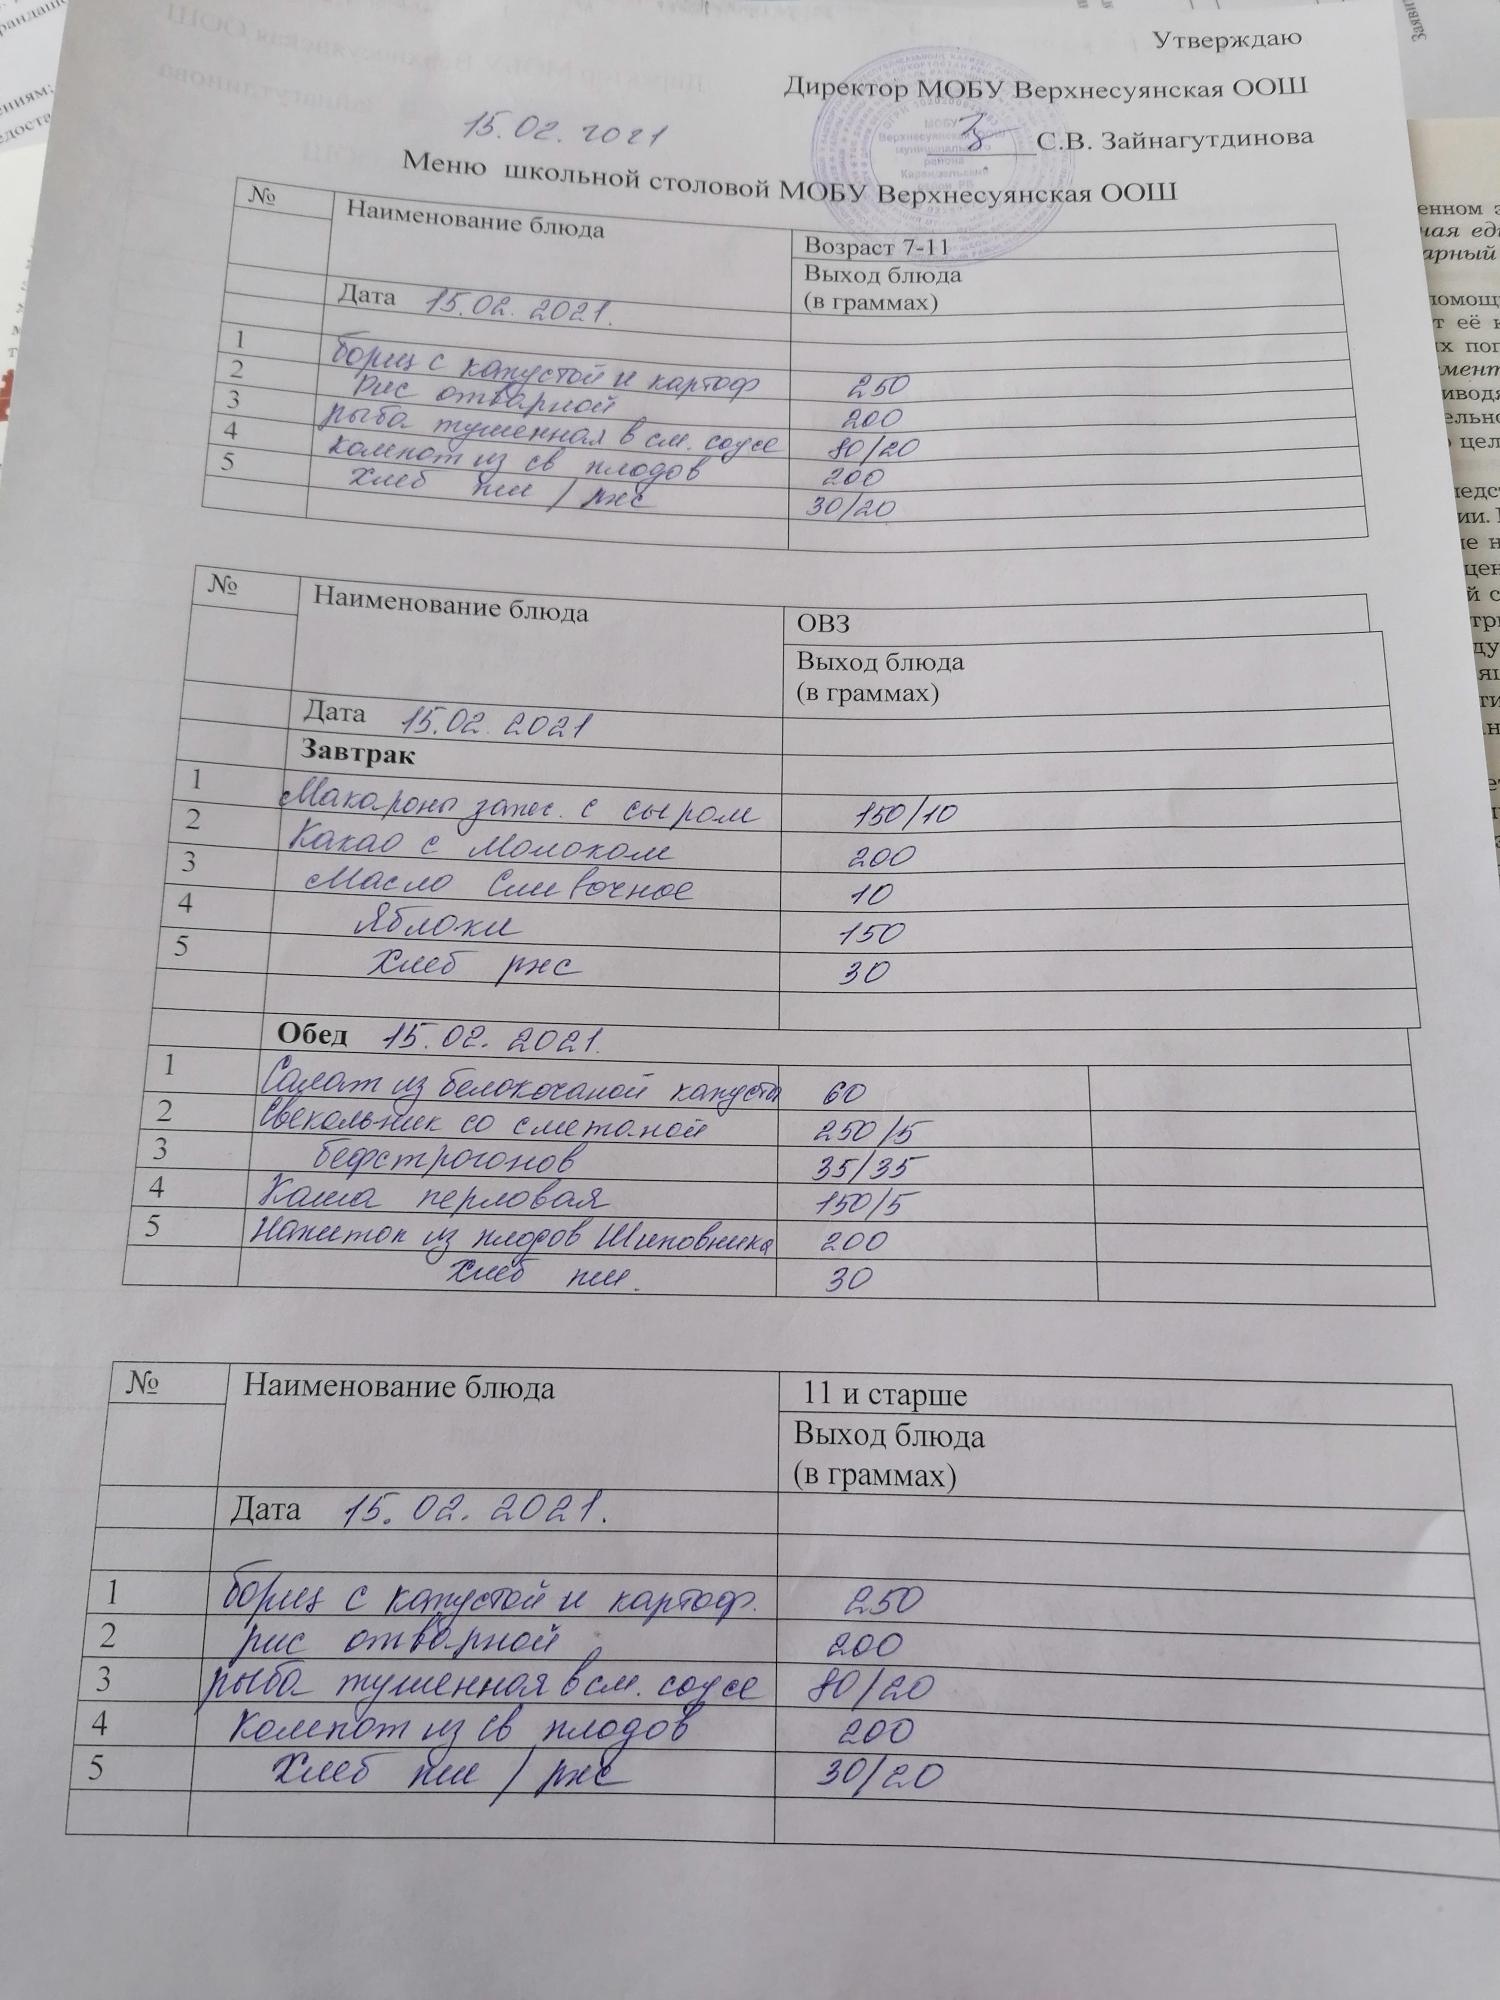 Утверждаю
Директор МОБУ Верхнесуянская ООШ
С.В. Зайнагутдинова
15.02.2021
Меню школьной столовой МОБУ Верхнесуянская ООШ
№ Наименование блюда Возраст 7-11
Выход блюда
(в граммах)
Дата 15.02.2021.
1 борщ с капустой и картоф 250
2 рис отварной 200
3 рыба тушенная в см. соусе 80/20
4 компот из св плодов 200
5 Хлеб пш / ржс 30/20
№ Наименование блюда ОВЗ
Выход блюда
(в граммах)
Дата 15.02.2021
Завтрак
1 Макароны запес. с сыром 150/10
2 Какао с молоком 200
3 Масло Сливочное 10
4 Яблоки 150
5 Хлеб ржс 30
Обед 15.02.2021.
1 Салат из белокочаной капусты 60
2 Свекольник со сметаной 250/5
3 бефстрогонов 35/35
4 Каша перловая 150/5
5 Напиток из плодов Шиповника 200
Хлеб пш. 30
№ Наименование блюда 11 и старше
Выход блюда
(в граммах)
Дата 15.02.2021.
1 борщ с капустой и картоф. 250
2 рис отварной 200
3 рыба тушенная в см. соусе 80/20
4 Компот из св плодов 200
5 Хлеб пш / ржс 30/20